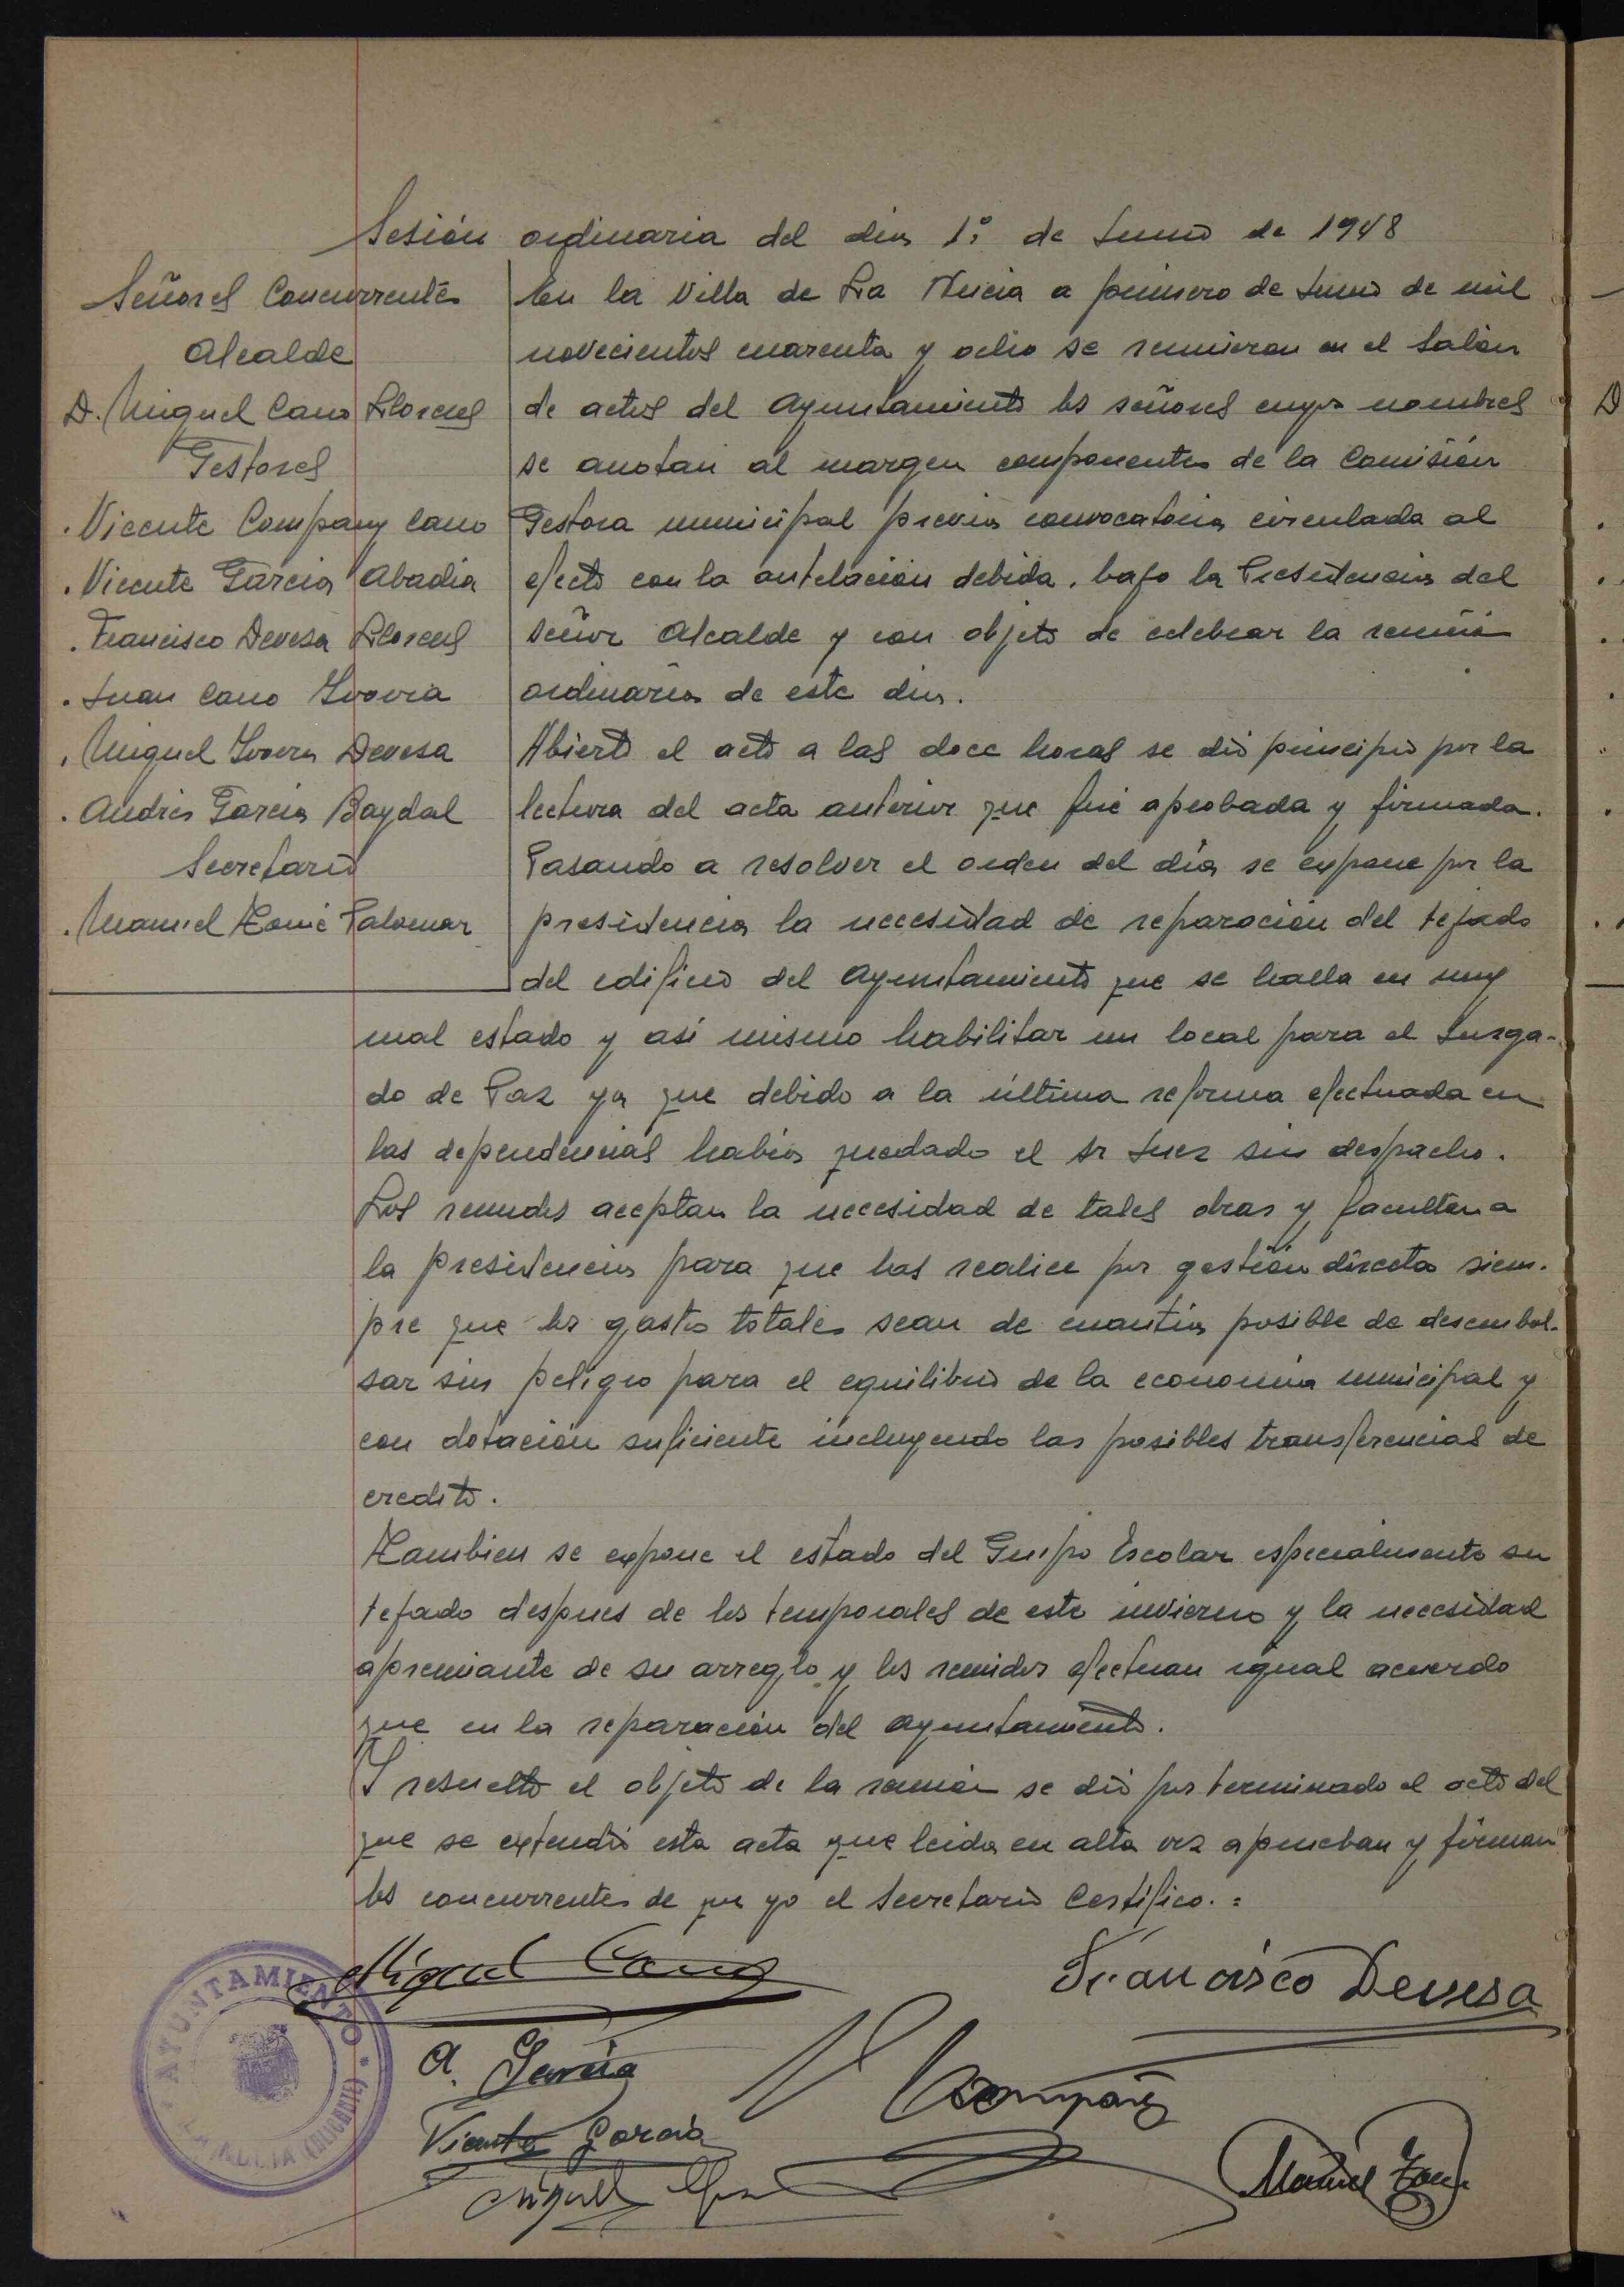 Sesión ordinaria del dia 1º de Junio de 1948
Señores Concurrentes
Alcalde
D. Miguel Cano Llorens
Gestores
. Vicente Company Cano
. Vicente Garcia Abadia
. Francisco Devesa Llorens
. Juan Cano Ivorra
. Miguel Ivorra Devesa
. Andrés Garcia Baydal
Secretario
. Manuel Tomé Palomar
En la Villa de La Nucia a primero de Junio de mil
novecientos cuarenta y ocho se reunieron en el Salón
de actos del Ayuntamiento los señores cuyos nombres
se anotan al margen componentes de la Comisión
Gestora municipal previa convocatoria circulada al
efecto con la antelación debida, bajo la Presidencia del
señor Alcalde y con objeto de celebrar la reunión
ordinaria de este dia.
Abierto el acto a las doce horas se dió principio por la
lectura del acta anterior que fué aprobada y firmada.
Pasando a resolver el orden del día se expone por la
presidencia la necesidad de reparación del tejado
del edificio del Ayuntamiento que se halla en muy
mal estado y así mismo habilitar un local para el Juzga-
do de Paz ya que debido a la última reforma efectuada en
las dependencias habia quedado el Sr Juez sin despacho.
Los reunidos aceptan la necesidad de tales obras y facultan a
la presidencia para que las realice por gestión directa siem-
pre que los gastos totales sean de cuantia posible de desembol-
sar sin peligro para el equilibrio de la economia municipal y
con dotación suficiente incluyendo las posibles transferencias de
credito.
Tambien se expone el estado del Grupo Escolar especialmente su
tejado despues de los temporales de este invierno y la necesidad
apremiante de su arreglo y los reunidos efectuan igual acuerdo
que en la reparación del Ayuntamiento.
Y resuelto el objeto de la reunión se dió por terminado el acto del
que se extendió esta acta que leida en alta voz aprueban y firman
los concurrentes de que yo el Secretario Certifico.=
Miguel Cano
Francisco Devesa
A. Garcia
V. Company
Vicente Garcia
Miguel
Manuel Tomé
AYUNTAMIENTO
LA NUCIA (ALICANTE)
D